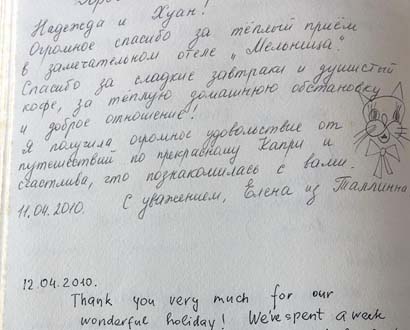 Надежда и Хуан!
Огромное спасибо за тёплый приём
в замечательном отеле „Мельница".
Спасибо за сладкие завтраки и душистый
кофе, за тёплую домашнюю обстановку
и доброе отношение!
Я получила огромное удовольствие от
путешествий по прекрасному Капри и
счастлива, что познакомилась с вами.
11.04.2010. С уважением, Елена из Таллинна
12.04.2010.
Thank you very much for our
wonderful holiday! We've spent a week